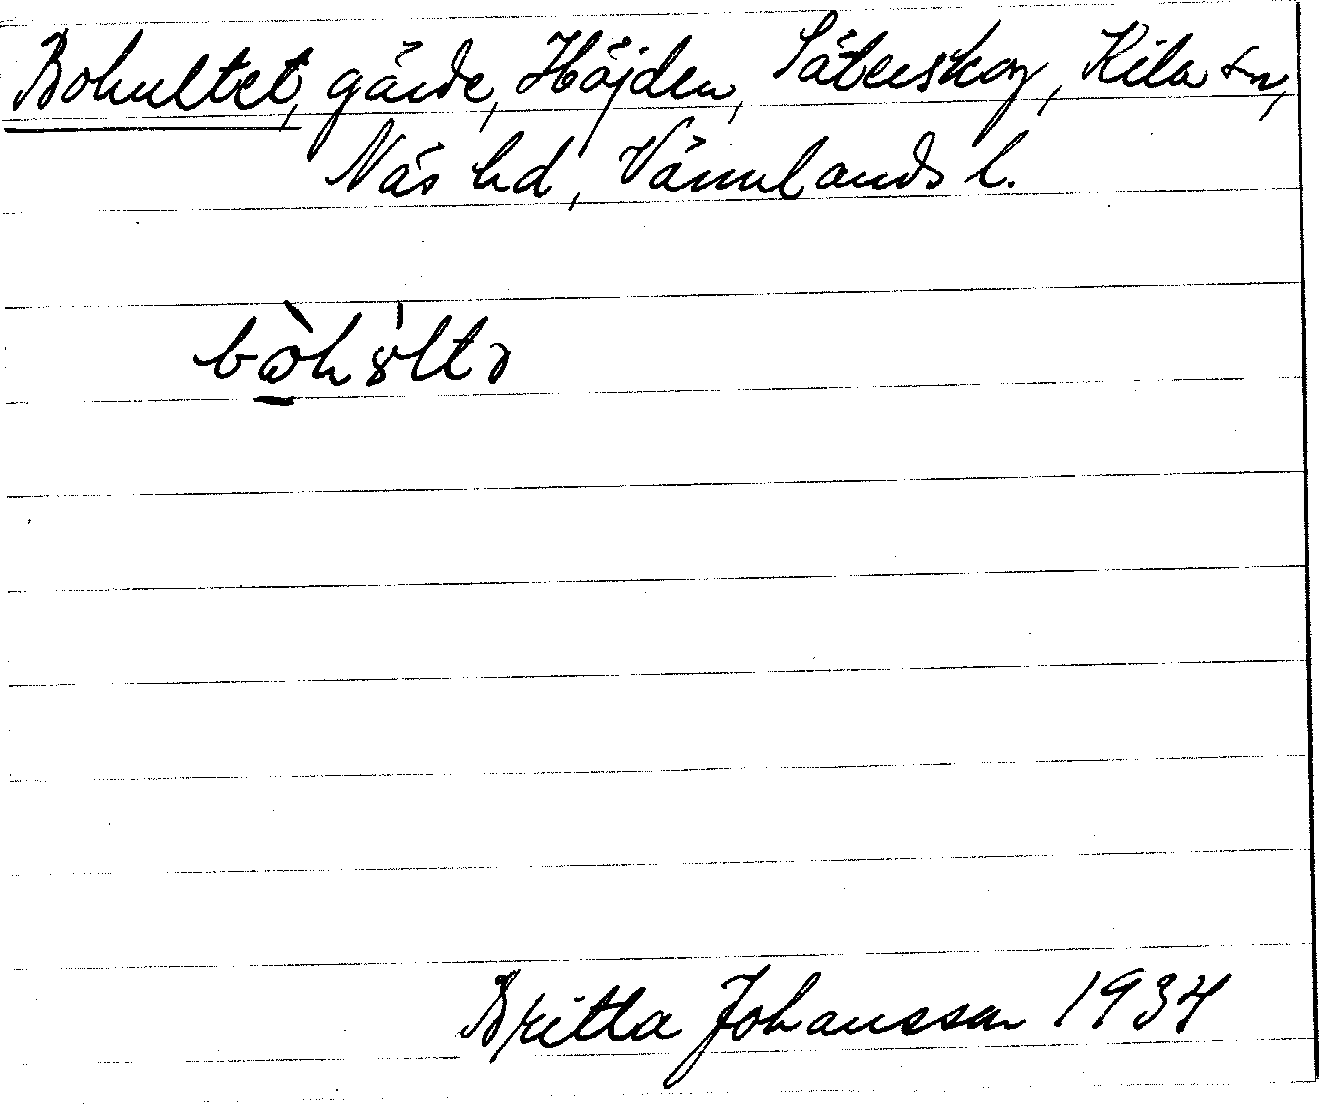 Bohultet, gärde, Höjden, Säterskog, Kila sn,
Näs hd, Värmlands l.
bò̱höltə
Britta Johansson 1934